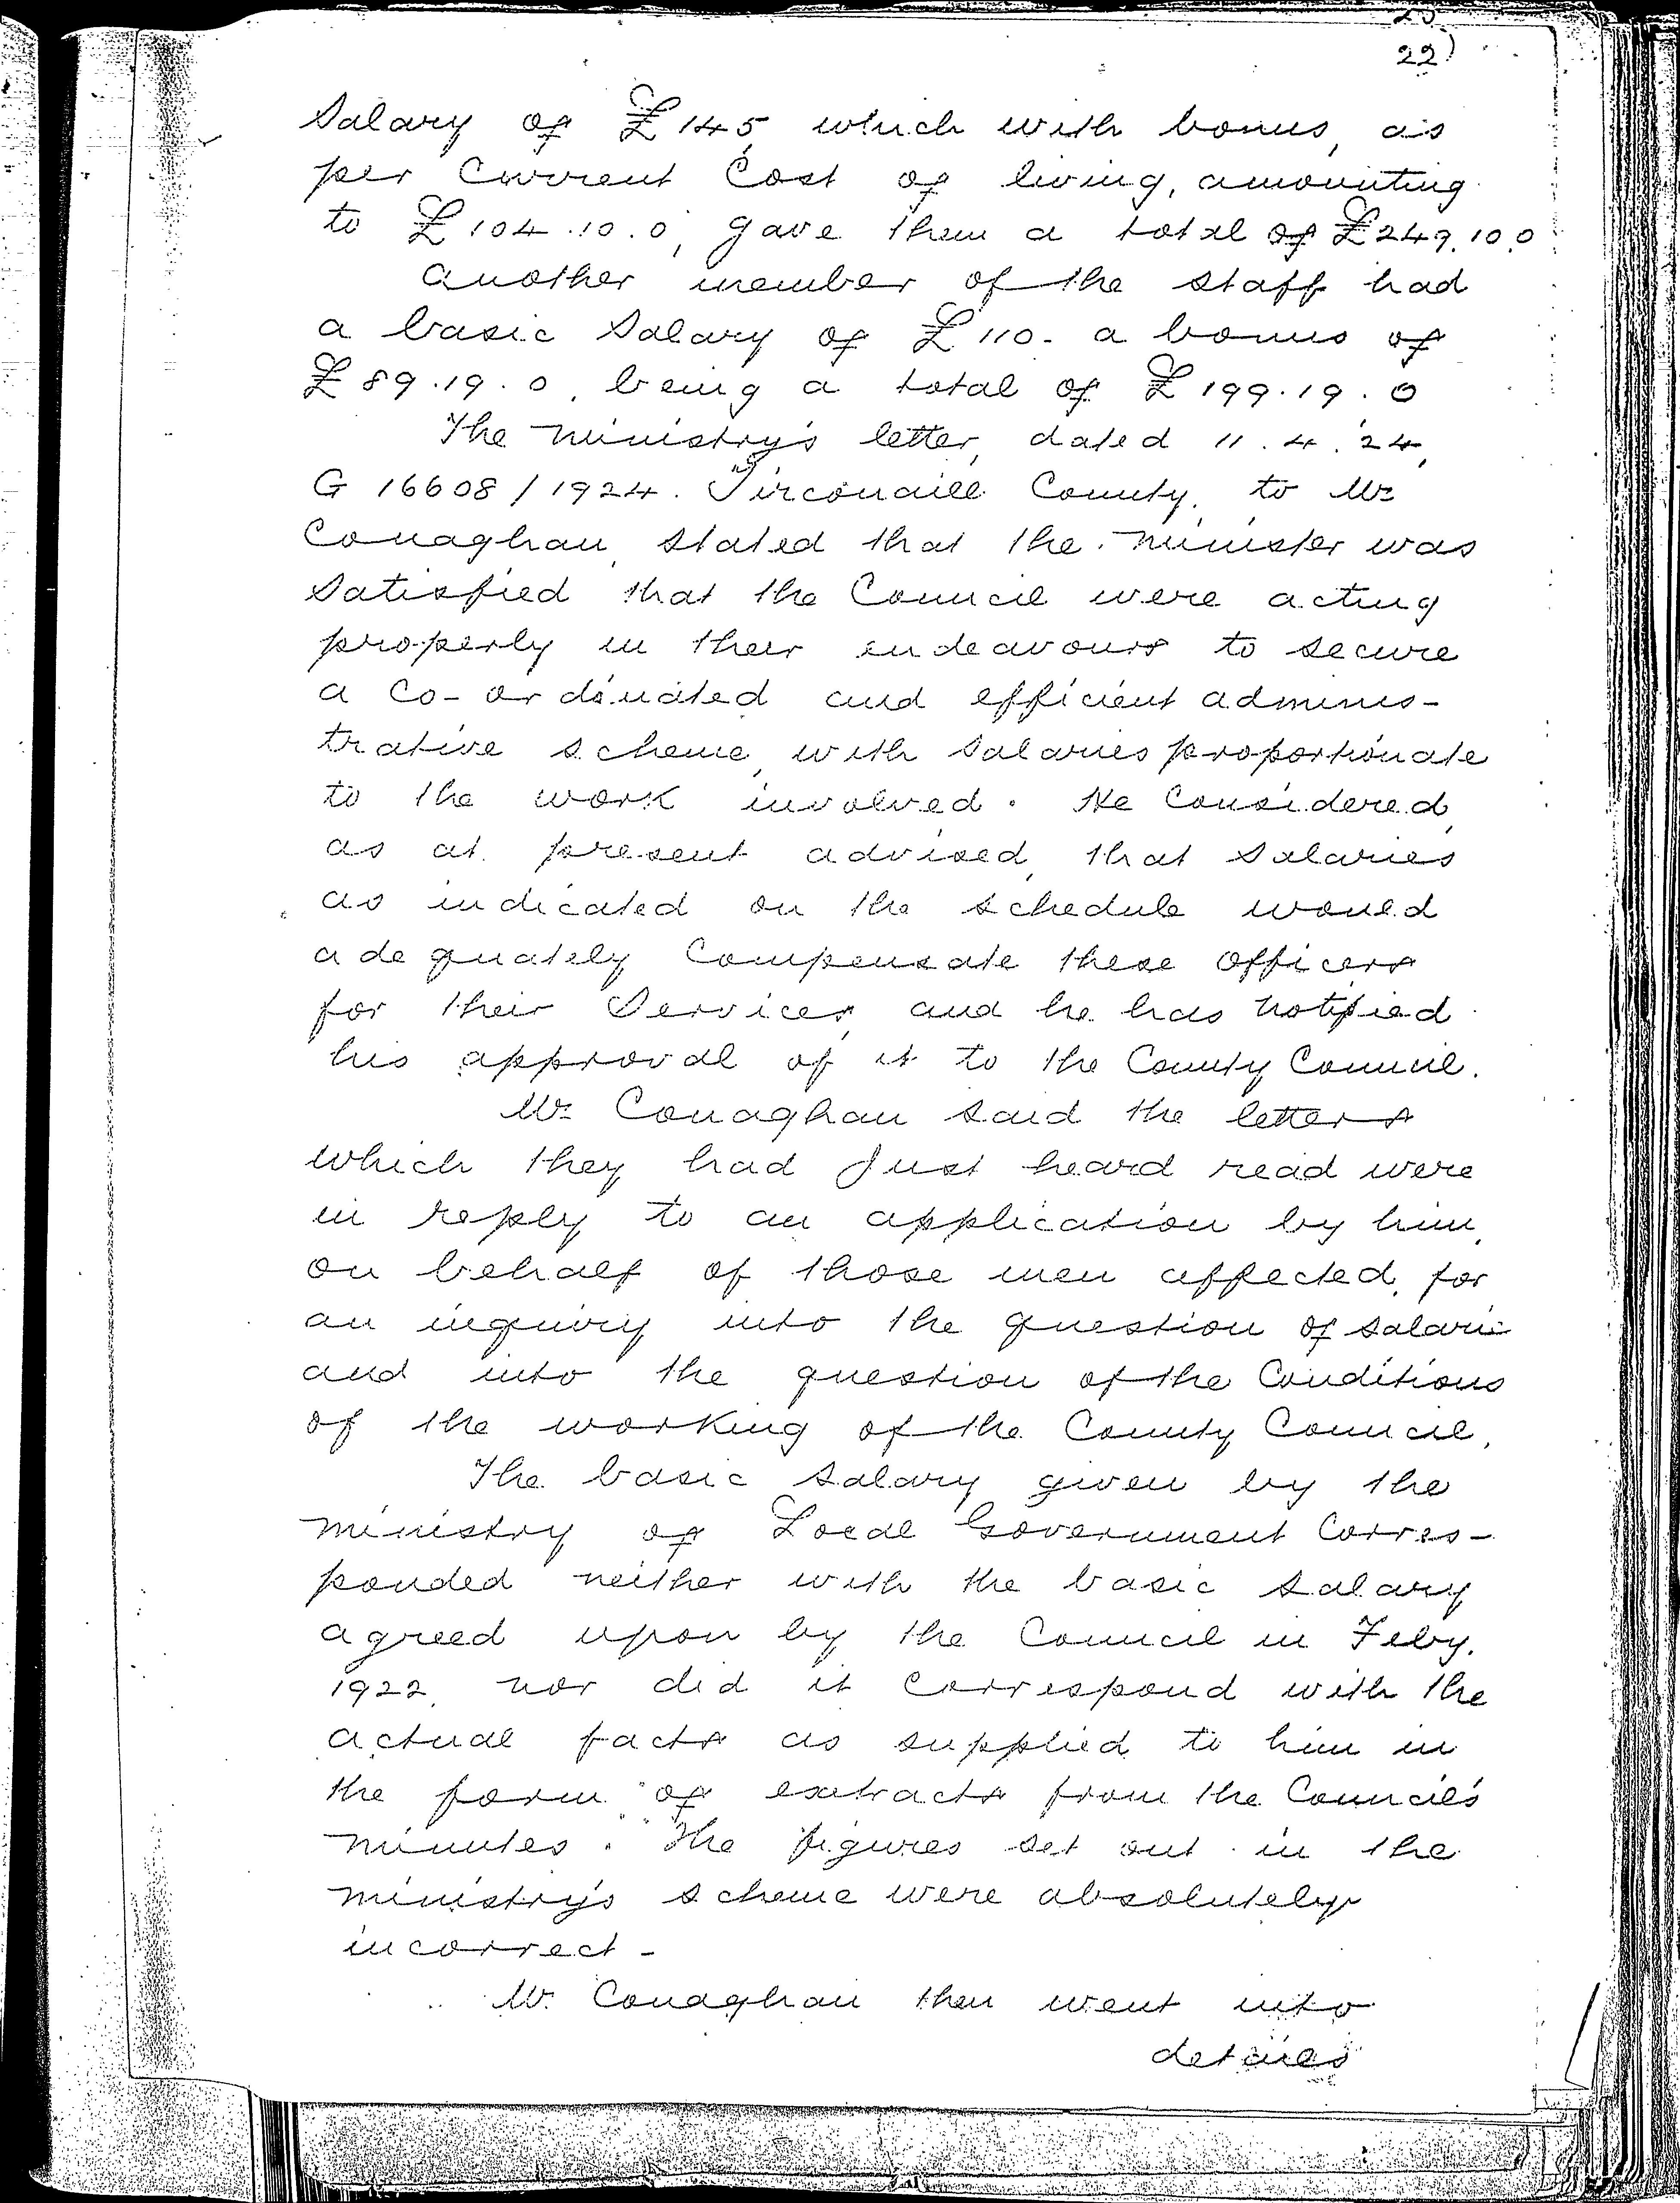 22)
Salary of £145, which with bonus, as
per Current Cost of living, amounting
to £104.10.0, gave them a total of £249.10.0
Another member of the staff had
a basic Salary of £110 - a bonus of
£89.19.0, being a total of £199.19.0
The Ministry's letter, dated 11.4.'24,
G 16608/1924. Tirconaill County, to Mr
Conaghan, stated that the Minister was
Satisfied that the Council were acting
properly in their endeavours to secure
a Co-ordinated and efficient adminis-
trative scheme, with Salaries proportionate
to the work involved. He Considered,
as at present advised, that Salaries
as indicated on the schedule would
adequately Compensate these officers
for their Services, and he has notified
his approval of it to the County Council.
Mr Conaghan said the letters
which they had Just heard read were
in reply to an application by him,
on behalf of those men affected, for
an inquiry into the question of salaries
and into the question of the Conditions
of the working of the County Council.
The basic salary given by the
Ministry of Local Government Corres-
ponded neither with the basic salary
agreed upon by the Council in Feby.
1922, nor did it correspond with the
actual facts as supplied to him in
the form of extracts from the Council's
Minutes. The figures set out in the
Ministry's scheme were absolutely
incorrect -
Mr. Conaghan then went into
details